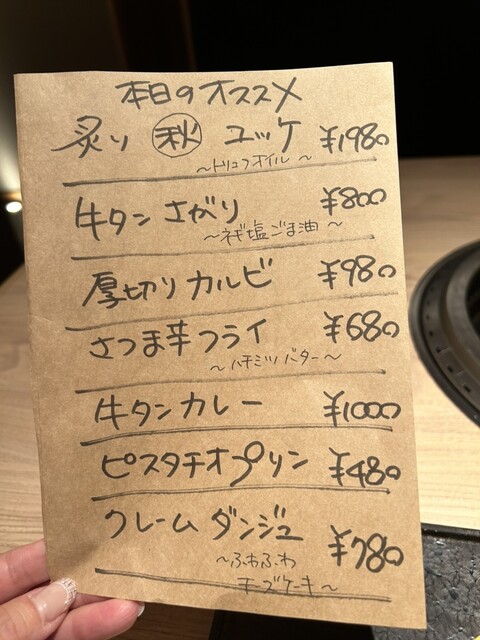 本日のオススメ
炙り 秋 ユッケ ¥1980
〜トリュフオイル〜
牛タン さがり ¥800
〜ネギ塩ごま油〜
厚切りカルビ ¥980
さつま芋フライ ¥680
〜ハチミツバター〜
牛タンカレー ¥1000
ピスタチオプリン ¥480
クレームダンジュ ¥780
〜ふわふわ
チーズケーキ〜